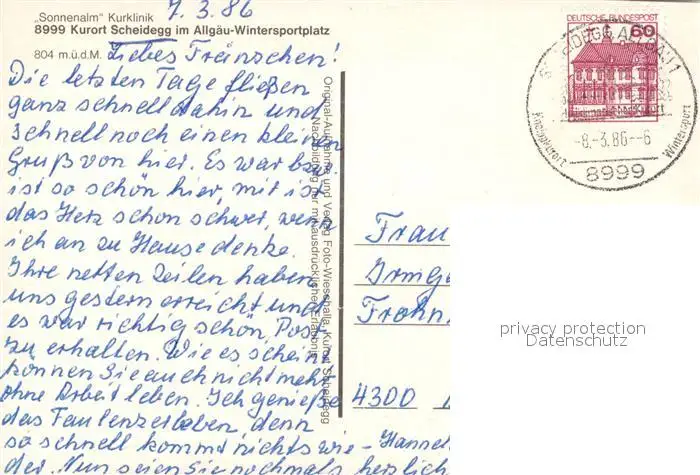 7.3.86
„Sonnenalm“ Kurklinik
8999 Kurort Scheidegg im Allgäu-Wintersportplatz
804 m.ü.d.M.
Liebes Fränschen!
Die letzten Tage fließen
ganz schnell dahin und
schnell noch einen kleinen
Gruß von hier. Es war bzw.
ist so schön hier, mit ist
das Herz schon schwer, wenn
ich an zu Hause denke.
Ihre netten Zeilen haben
uns gestern erreicht und
es war richtig schön, Post
zu erhalten. Wie es scheint
können Sie auch nicht mehr
ohne Arbeit leben. Ich genieße
das Faulenzerleben, denn
so schnell kommt nichts wie-
der. Nun seien Sie nochmals herzlich
Hannel
Original-Aufnahme und Verlag Foto-Wiesshalla, Kurort Scheidegg
Nachbildung nur mit ausdrücklicher Erlaubnis
DEUTSCHE BUNDESPOST
60
SCHEIDEGG, ALLGÄU 1
-8.-3.86--6
Kneippkurort
Wintersport
8999
Frau
Irmga
Frohn
4300
privacy protection
Datenschutz